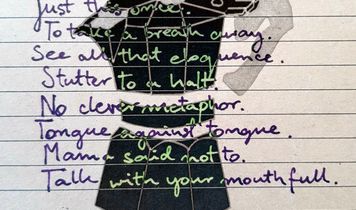 Just this once.
To take a breath away.
See all that eloquence.
Stutter to a halt.
No clever metaphor.
Tongue against tongue.
Mama said not to.
Talk with your mouthfull.